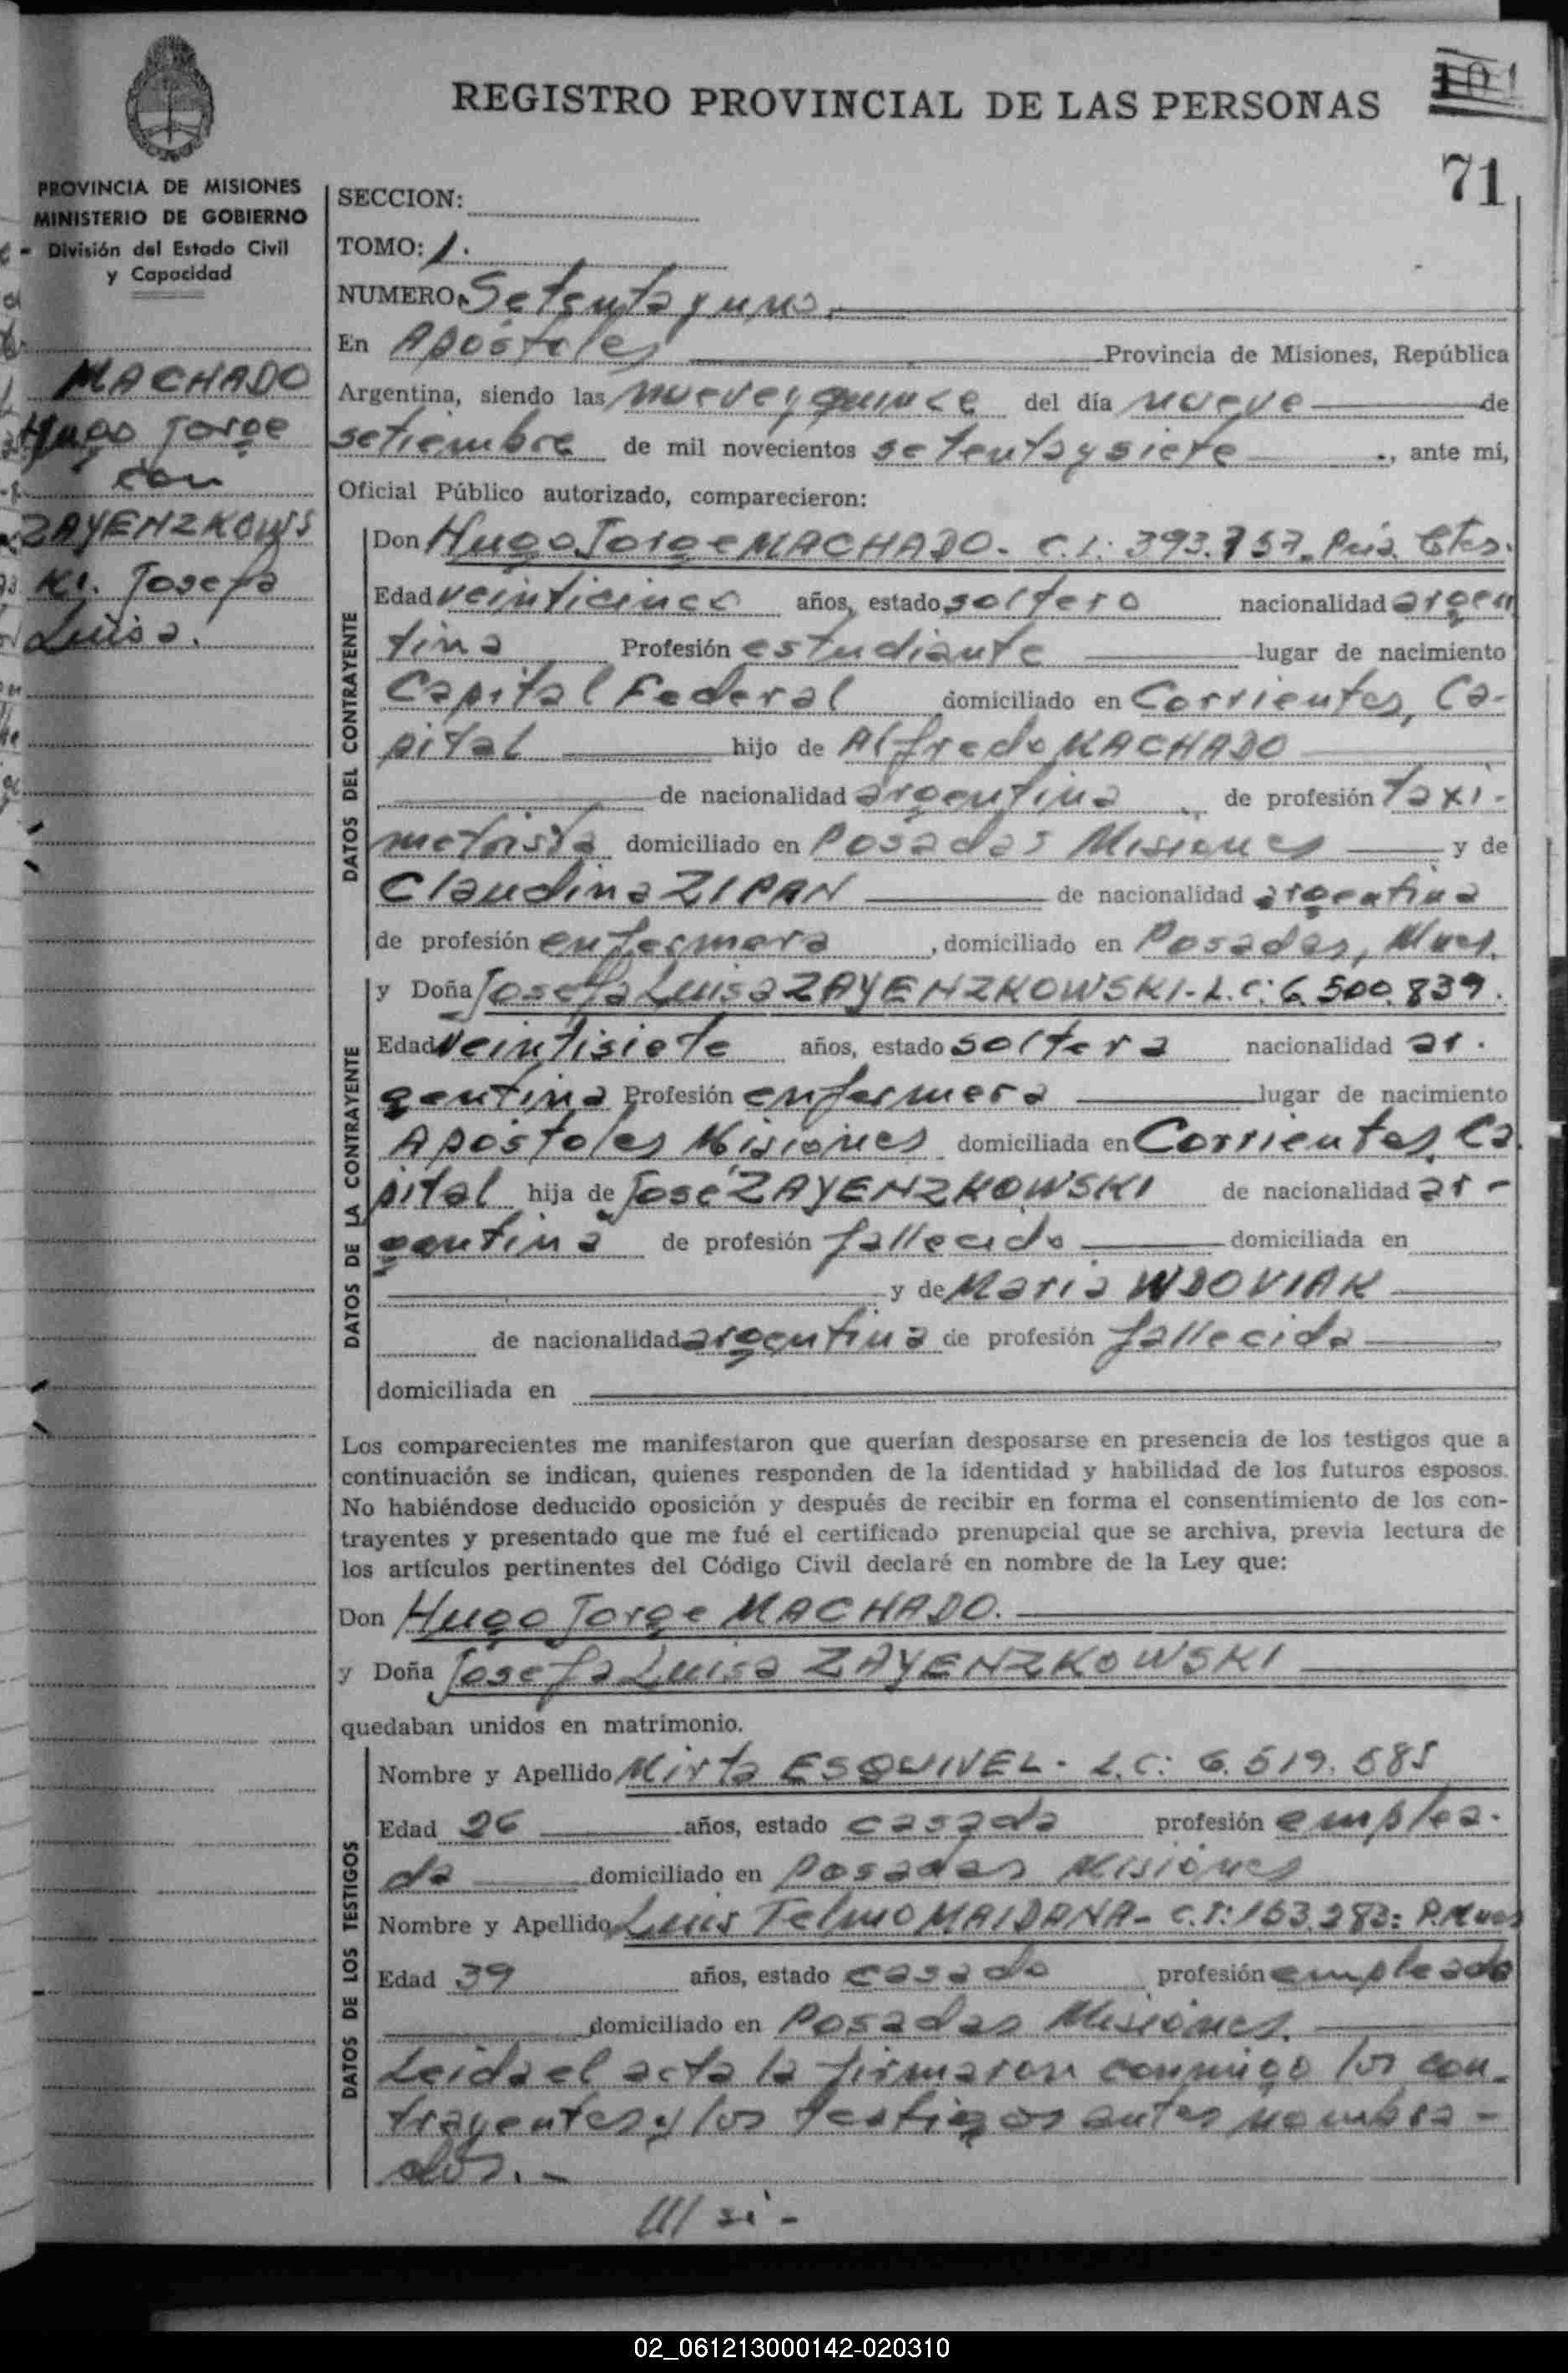 REGISTRO PROVINCIAL DE LAS PERSONAS
101
71
PROVINCIA DE MISIONES
MINISTERIO DE GOBIERNO
División del Estado Civil
y Capacidad
MACHADO
Hugo Jorge
con
ZAYENZKOWS
KI. Josefa
Luisa.
SECCION:
TOMO: 1.
NUMERO Setenta y uno.
En Apóstoles Provincia de Misiones, República
Argentina, siendo las nueve y quince del día nueve de
setiembre de mil novecientos setenta y siete, ante mí,
Oficial Público autorizado, comparecieron:
DATOS DEL CONTRAYENTE
Don Hugo Jorge MACHADO. C.I: 393.757. Pcia. Ctes.
Edad veinticinco años, estado soltero nacionalidad argen
tina Profesión estudiante lugar de nacimiento
Capital Federal domiciliado en Corrientes, Ca-
pital hijo de Alfredo MACHADO
de nacionalidad argentina de profesión taxi-
metrista domiciliado en Posadas Misiones y de
Claudina ZIPAN de nacionalidad argentina
de profesión enfermera, domiciliado en Posadas, Mnes.
DATOS DE LA CONTRAYENTE
y Doña Josefa Luisa ZAYENZKOWSKI-L.C: 6.500.839.
Edad veintisiete años, estado soltera nacionalidad ar-
gentina Profesión enfermera lugar de nacimiento
Apóstoles Misiones domiciliada en Corrientes, Ca
pital hija de José ZAYENZKOWSKI de nacionalidad ar-
gentina de profesión fallecido domiciliada en
y de María WDOVIAK
de nacionalidad argentina de profesión fallecida
domiciliada en
Los comparecientes me manifestaron que querían desposarse en presencia de los testigos que a
continuación se indican, quienes responden de la identidad y habilidad de los futuros esposos.
No habiéndose deducido oposición y después de recibir en forma el consentimiento de los con-
trayentes y presentado que me fué el certificado prenupcial que se archiva, previa lectura de
los artículos pertinentes del Código Civil declaré en nombre de la Ley que:
Don Hugo Jorge MACHADO.
y Doña Josefa Luisa ZAYENZKOWSKI
quedaban unidos en matrimonio.
DATOS DE LOS TESTIGOS
Nombre y Apellido Mirta ESQUIVEL- L.C: 6.519.585
Edad 26 años, estado casada profesión emplea-
da domiciliado en Posadas Misiones
Nombre y Apellido Luis Telmo MAIDANA- C.I: 163.283: P.Mnes
Edad 39 años, estado casado profesión empleado
domiciliado en Posadas Misiones.
Leida el acta la firmaron conmigo los con-
trayentes y los testigos antes nombra-
dos.-
///si-
02_061213000142-020310